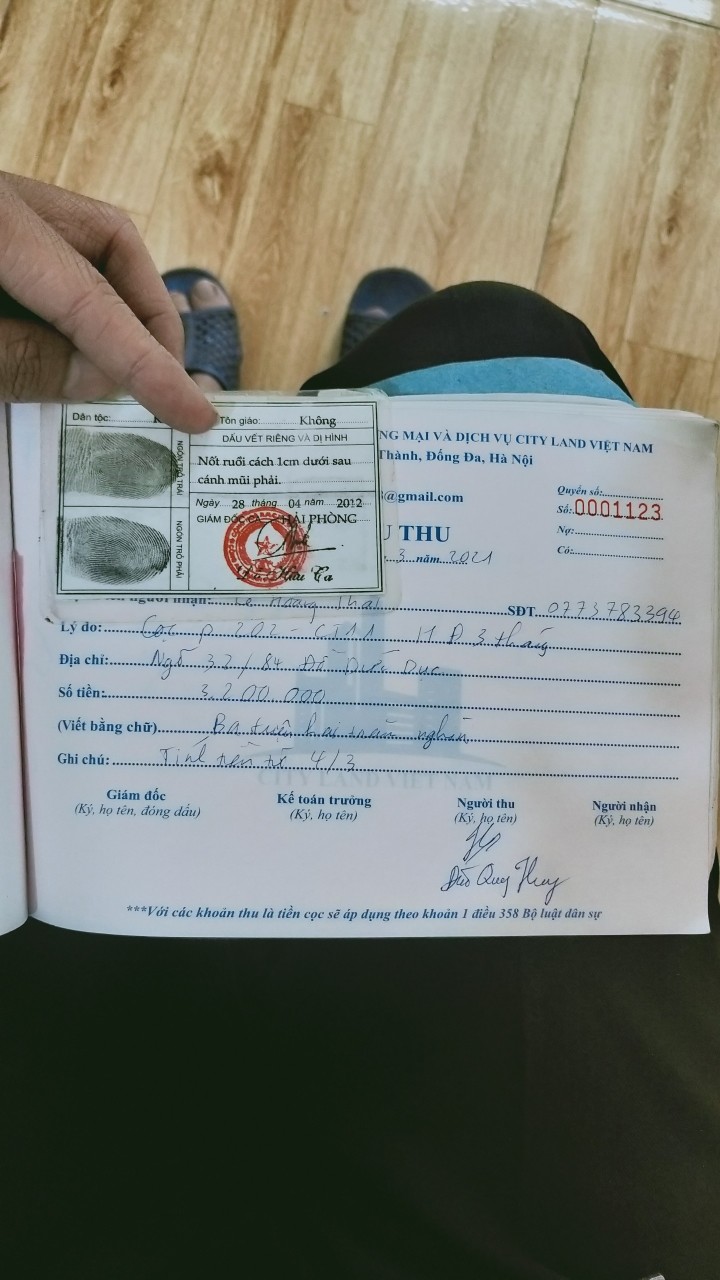 Dân tộc: K
Tôn giáo: Không
NGÓN TRỎ TRÁI
DẤU VẾT RIÊNG VÀ DỊ HÌNH
Nốt ruồi cách 1cm dưới sau
cánh mũi phải.
Ngày 28 tháng 04 năm 2012
GIÁM ĐỐC CA HẢI PHÒNG
NGÓN TRỎ PHẢI
Đỗ Hữu Ca
NG MẠI VÀ DỊCH VỤ CITY LAND VIỆT NAM
Thành, Đống Đa, Hà Nội
@gmail.com
Quyển số:
Số: 0001123
Nợ:
Có:
U THU
3 năm 2021
người nhận: Lê Hoàng Thái
SĐT 0773783394
Lý do: Cọc p 202 - CT11 HĐ 3 tháng
Địa chỉ: Ngõ 32/84
Số tiền: 3.200.000
(Viết bằng chữ) Ba triệu hai trăm nghìn
Ghi chú: Tính tiền từ 4/3
CITY LAND VIỆT NAM
Giám đốc Kế toán trưởng Người thu Người nhận
(Ký, họ tên, đóng dấu) (Ký, họ tên) (Ký, họ tên) (Ký, họ tên)
Quy Thuy
***Với các khoản thu là tiền cọc sẽ áp dụng theo khoản 1 điều 358 Bộ luật dân sự